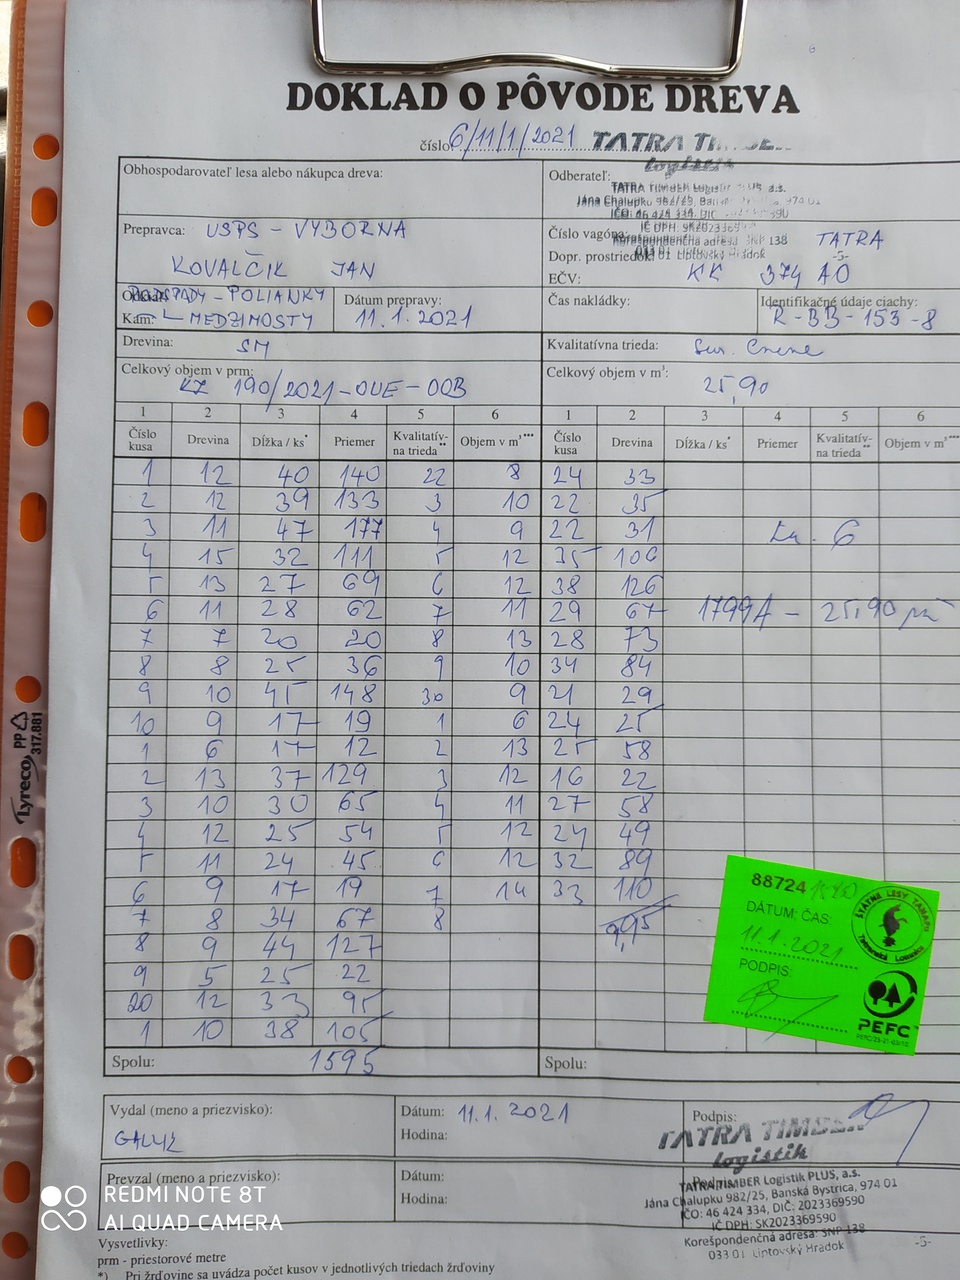 DOKLAD O PÔVODE DREVA
číslo 6/11/1/2021 TATRA
logistik
Obhospodarovateľ lesa alebo nákupca dreva:
Odberateľ:
TATRA TIMBER Logistik PLUS a.s.
Jána Chalupku 982/25, Banská 974 01
IČO: 46 424 334, DIČ
IČ DPH: SK2023369590
Korešpondenčná adresa: SNP 138
033 01 Liptovský Hrádok -5-
Prepravca: USPS - VÝBORNÁ
KOVALČIK JAN
Číslo vagóna: TATRA
Dopr. prostriedok:
EČV: KK 374 AO
Odkiaľ: PODSPADY - POLIANKY
Kam: MEDZIMOSTY
Dátum prepravy:
11.1.2021
Čas nakládky:
Identifikačné údaje ciachy:
R-BB-153-8
Drevina: SM
Kvalitatívna trieda: Sur.
Celkový objem v prm:
KZ 190/2021-OUE-OOB
Celkový objem v m³:
25,90
1 2 3 4 5 6 1 2 3 4 5 6
Číslo kusa Drevina Dĺžka / ks* Priemer Kvalitatívna trieda** Objem v m³*** Číslo kusa Drevina Dĺžka / ks* Priemer Kvalitatívna trieda** Objem v m³***
1 12 40 140 22 8 24 33
2 12 39 133 3 10 22 35
3 11 47 177 4 9 22 31 6
4 15 32 111 5 12 35 106
5 13 27 69 6 12 38 126
6 11 28 62 7 11 29 67 1799A - 25,90
7 7 20 20 8 13 28 73
8 8 25 36 9 10 34 84
9 10 45 148 30 9 21 29
10 9 17 19 1 6 24 25
1 6 17 12 2 13 25 58
2 13 37 129 3 12 16 22
3 10 30 65 4 11 27 58
4 12 25 54 5 12 24 49
5 11 24 45 6 12 32 89
6 9 17 19 7 14 33 110
7 8 34 67 8
8 9 44 127
9 5 25 22
20 12 33 95
1 10 38 105
Spolu: 1595 Spolu:
88724
DÁTUM; ČAS:
11.1.2021
PODPIS:
ŠTÁTNE LESY TANAPU
Tatranská Lomnica
PEFC
Vydal (meno a priezvisko):
Dátum: 11.1.2021
Hodina:
Podpis:
TATRA TIMBER
logistik
Prevzal (meno a priezvisko):
Dátum:
Hodina:
TATRA TIMBER Logistik PLUS, a.s.
Jána Chalupku 982/25, Banská Bystrica, 974 01
IČO: 46 424 334, DIČ: 2023369590
IČ DPH: SK2023369590
Korešpondenčná adresa: SNP 138
033 01 Liptovský Hrádok -5-
Vysvetlivky:
prm - priestorové metre
*) Pri žrďovine sa uvádza počet kusov v jednotlivých triedach žrďoviny
Lyreco PP 317.881
REDMI NOTE 8T
AI QUAD CAMERA